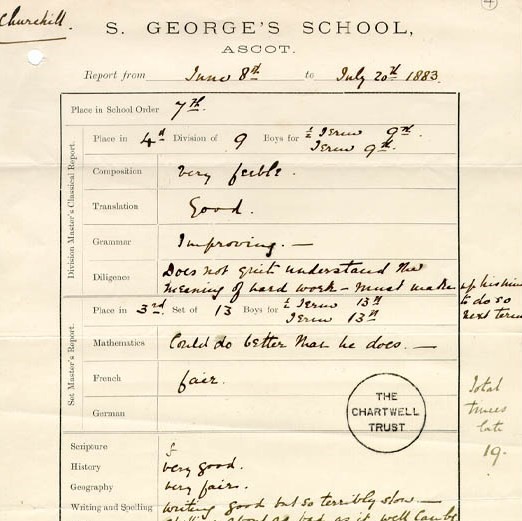 Churchill.
4
S. GEORGE'S SCHOOL,
ASCOT.
Report from June 8th to July 20th 1883.
Place in School Order 7th.
Division Master's Classical Report.
Place in 4th Division of 9 Boys for ½ Term 9th.
Term 9th.
Composition very feeble.
Translation Good.
Grammar Improving. —
Diligence Does not quite understand the
meaning of hard work – must make up his mind
to do so
next term
Set Master's Report.
Place in 3rd. Set of 13 Boys for ½ Term 13th
Term 13th
Mathematics Could do better than he does. —
French fair.
German
THE
CHARTWELL
TRUST
Total
times
late
19.
Scripture
History very good.
Geography very fair.
Writing and Spelling Writing good but so terribly slow —
Spelling about as bad as it well can be